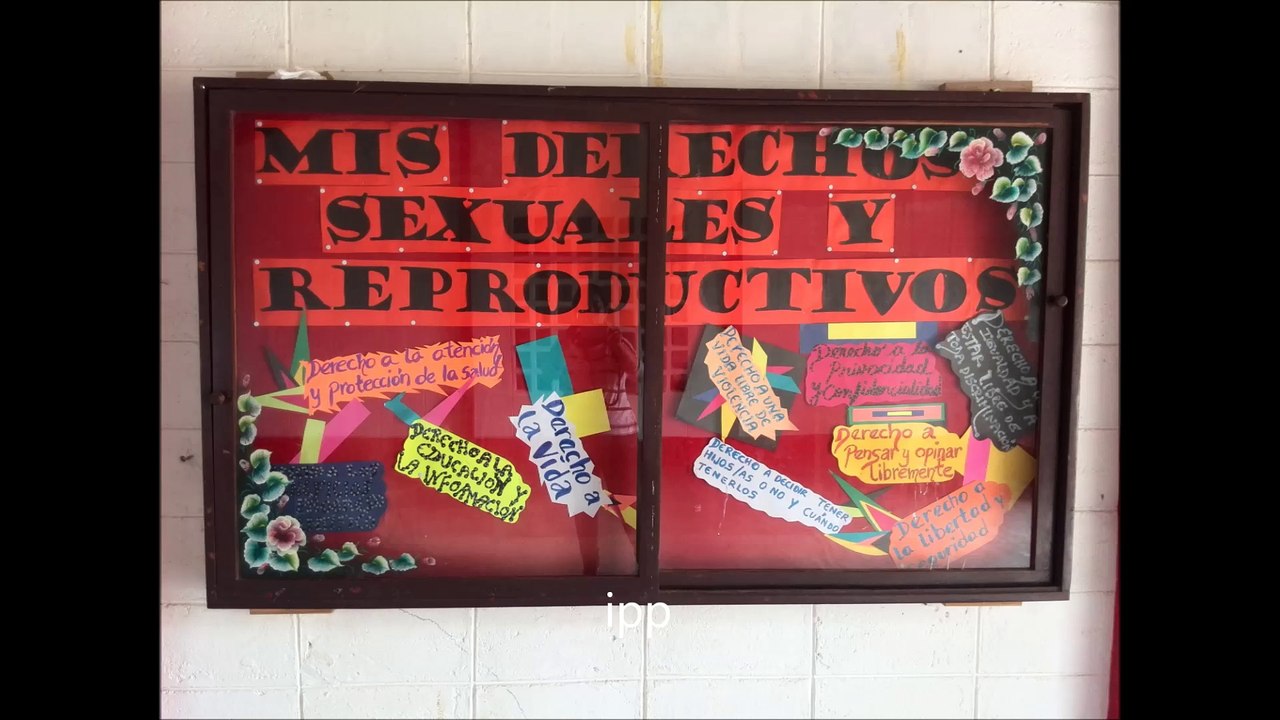 MIS DERECHOS
SEXUALES Y
REPRODUCTIVOS
Derecho a la atención
y protección de la salud
DERECHO A LA
EDUCACION Y
LA INFORMACION
Derecho a
la Vida
DERECHO A UNA
VIDA LIBRE DE
VIOLENCIA
Derecho a la
Privacidad
y Confidencialidad
DERECHO A LA
IGUALDAD Y A
ESTAR LIBRE DE
TODA DISCRIMINACIÓN
DERECHO A DECIDIR TENER
HIJOS/AS O NO Y CUÁNDO
TENERLOS
Derecho a
Pensar y opinar
libremente
Derecho a
la libertad y
seguridad
ipp